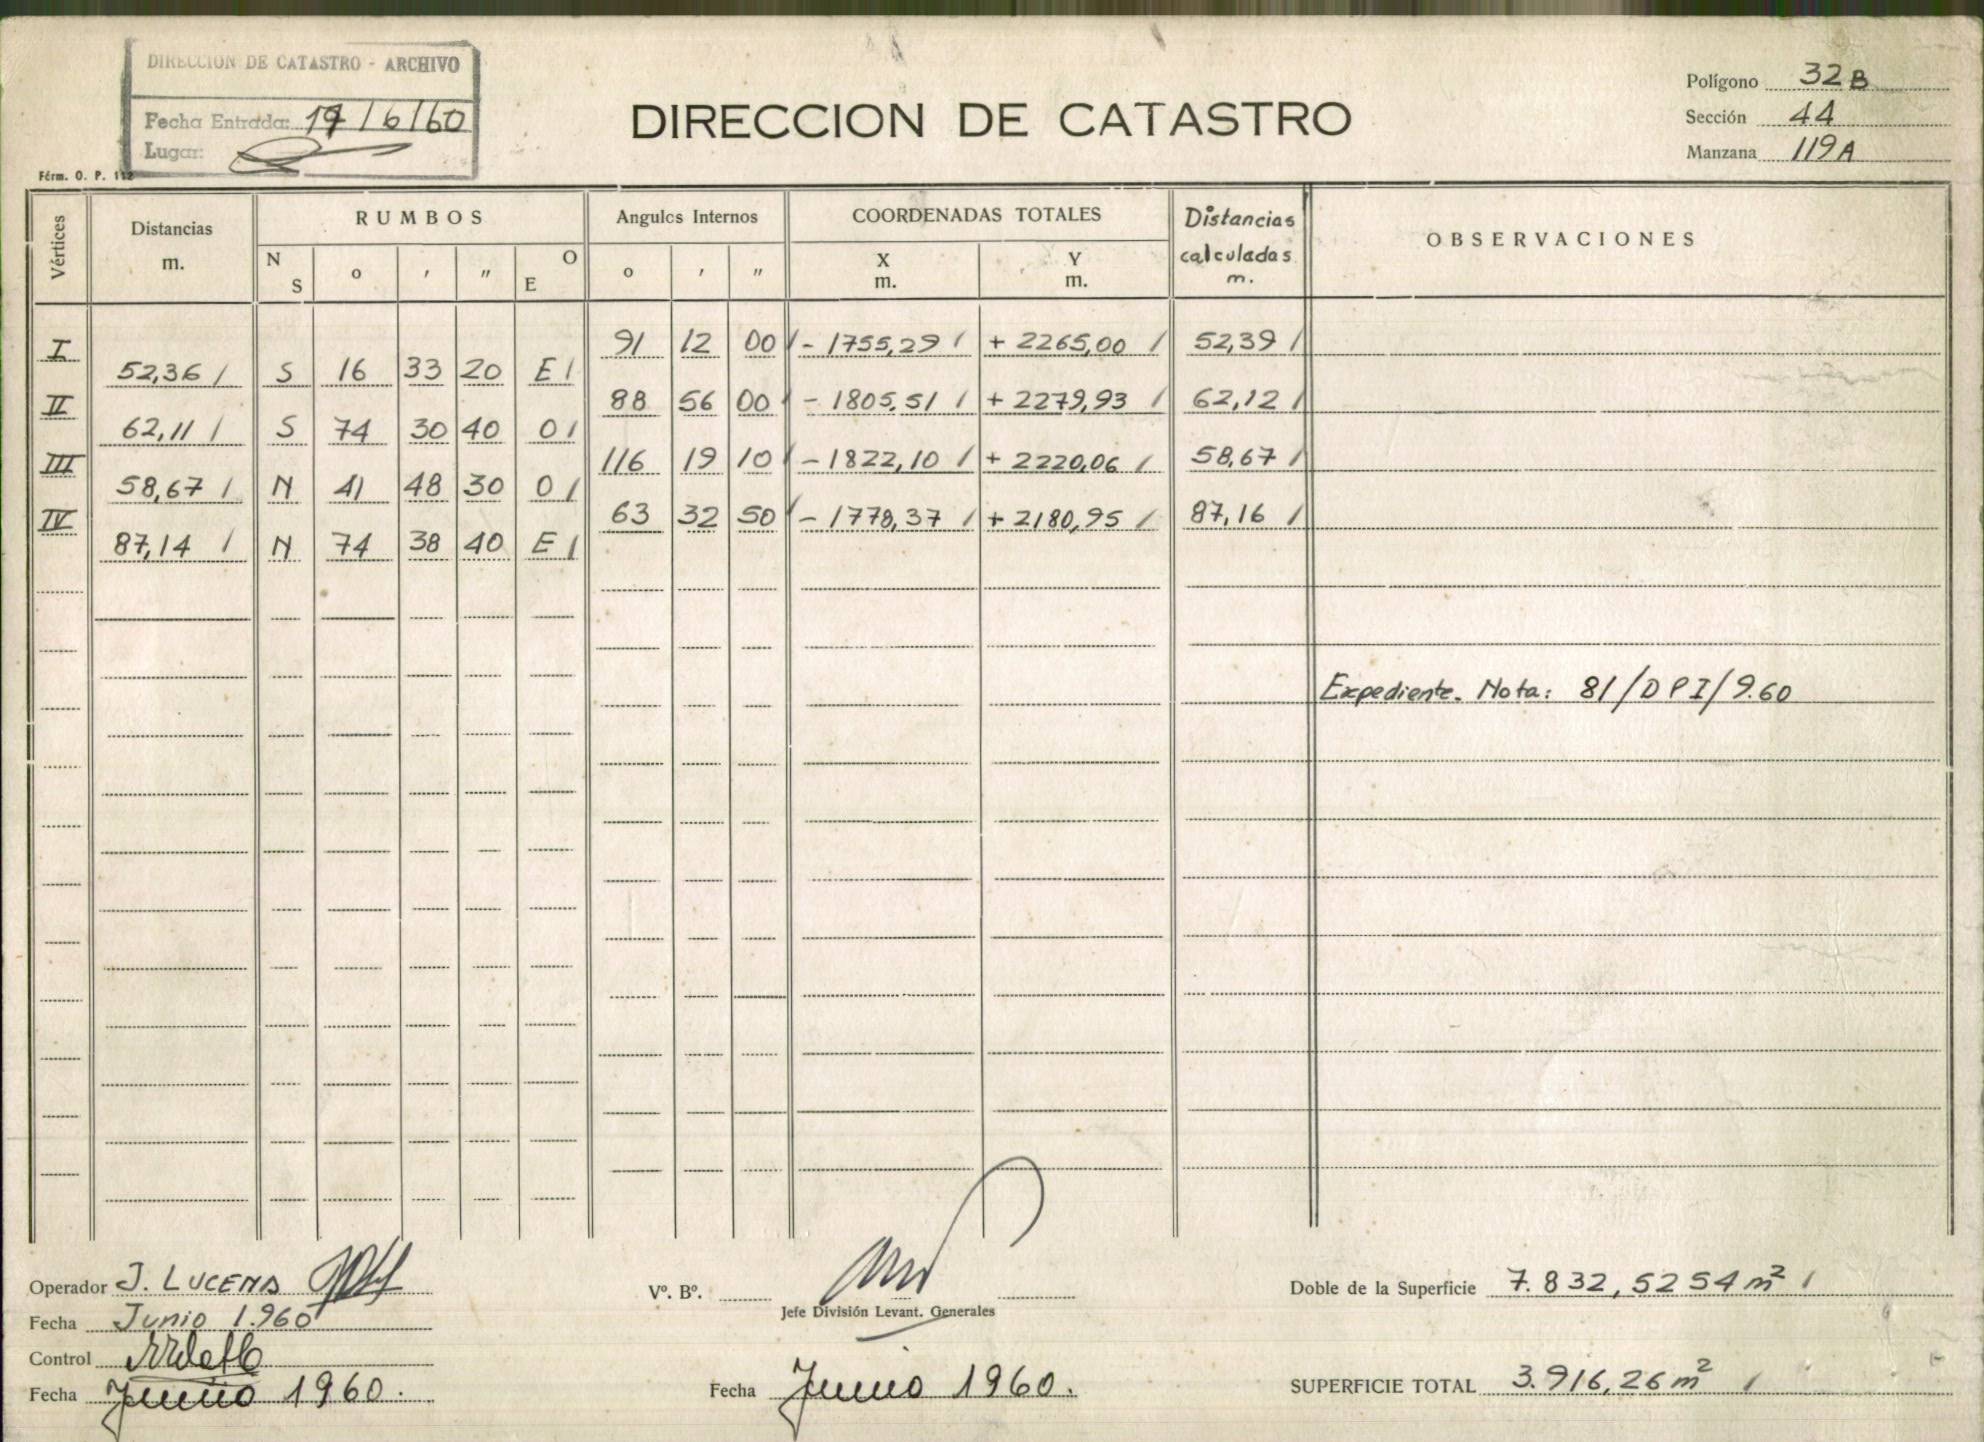 DIRECCION DE CATASTRO - ARCHIVO
Fecha Entrada: 17/6/60
Lugar:
Fórm. O. P. 112
DIRECCION DE CATASTRO
Polígono 32B
Sección 44
Manzana 119A
Vértices
Distancias m.
RUMBOS
N S o ' " O E
Angulos Internos
o ' "
COORDENADAS TOTALES
X m. Y m.
Distancias calculadas m.
OBSERVACIONES
I 91 12 00 - 1755,29 + 2265,00 52,39
52,36 S 16 33 20 E
II 88 56 00 - 1805,51 + 2279,93 62,12
62,11 S 74 30 40 O
III 116 19 10 - 1822,10 + 2220,06 58,67
58,67 N 41 48 30 O
IV 63 32 50 - 1778,37 + 2180,95 87,16
87,14 N 74 38 40 E
Expediente. Nota: 81/DPI/9.60
Operador J. LUCENA
Fecha Junio 1.960
Control
Fecha Junio 1960.
Vº. Bº.
Jefe División Levant. Generales
Fecha Junio 1960.
Doble de la Superficie 7.832,5254 m²
SUPERFICIE TOTAL 3.916,26 m²